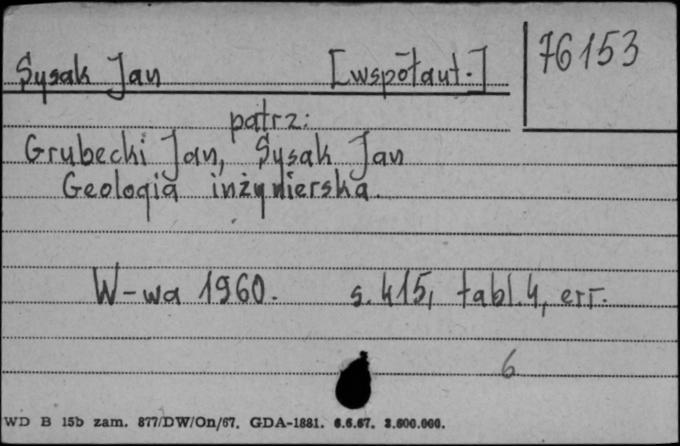 76153
Sysak Jan [współaut.]
patrz:
Grubecki Jan, Sysak Jan
Geologia inżynierska.
W-wa 1960. s. 415, tabl. 4, err.
6
WD B 15b zam. 877/DW/On/67. GDA-1881. 6.6.67. 2.600.000.